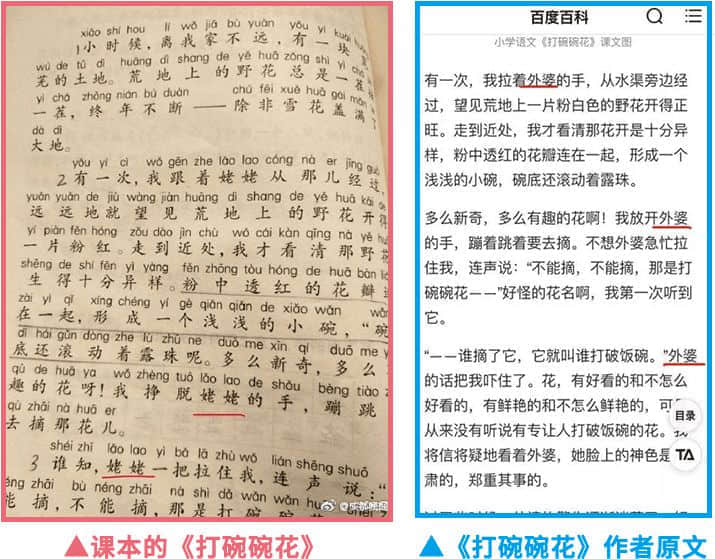 xiǎo shí hou lí wǒ jiā bù yuǎn yǒu yí kuài
1小时候，离我家不远，有一块
wú de tǔ dì huāng dì shang de yě huā zǒng shì yì chá
芜的土地。荒地上的野花总是一茬
yì chá zhōng nián bú duàn chú fēi xuě huā gài mǎn
一茬，终年不断——除非雪花盖满了
dà dì
大地。
yǒu yí cì wǒ gēn zhe lǎo lao cóng nà er jīng guò
2有一次，我跟着姥姥从那儿经过，
yuǎn yuǎn de jiù wàng jiàn huāng dì shang de yě huā kāi de
远远地就望见荒地上的野花开得
yí piàn fěn hóng zǒu dào jìn chù wǒ cái kàn qīng nà yě huā
一片粉红。走到近处，我才看清那野花
shēng de shí fēn yì yàng fěn zhōng tòu hóng de huā bàn
生得十分异样。粉中透红的花瓣
zài yì qǐ xíng chéng yí gè qiǎn qiǎn de xiǎo wǎn wǎn
在一起，形成一个浅浅的小碗，“碗
dǐ hái gǔn dòng zhe lù zhū ne duō me xīn qí duō me yǒu
底还滚动着露珠呢。多么新奇，多么
qù de huā ya wǒ zhèng tuō lǎo lao de shǒu bèng tiào
趣的花呀！我挣脱姥姥的手，蹦跳
qù zhāi nà huā er
去摘那花儿。
shéi zhī lǎo lao yì bǎ lā zhù wǒ lián shēng shuō
3谁知，姥姥一把拉住我，连声说：“
néng zhāi bù néng zhāi nà shì dǎ wǎn wǎn huā
能摘，不能摘，那是打碗碗花
▲课本的《打碗碗花》
百度百科
小学语文《打碗碗花》课文图
有一次，我拉着外婆的手，从水渠旁边经
过，望见荒地上一片粉白色的野花开得正
旺。走到近处，我才看清那花开是十分异
样，粉中透红的花瓣连在一起，形成一个
浅浅的小碗，碗底还滚动着露珠。
多么新奇，多么有趣的花啊！我放开外婆
的手，蹦着跳着要去摘。不想外婆急忙拉
住我，连声说：“不能摘，不能摘，那是打
碗碗花——”好怪的花名啊，我第一次听到
它。
“——谁摘了它，它就叫谁打破饭碗。”外婆
的话把我吓住了。花，有好看的和不怎么
好看的，有鲜艳的和不怎么鲜艳的，可
从来没有听说有专让人打破饭碗的花。我
将信将疑地看着外婆，她脸上的神色是
肃的，郑重其事的。
目录
TA
▲《打碗碗花》作者原文